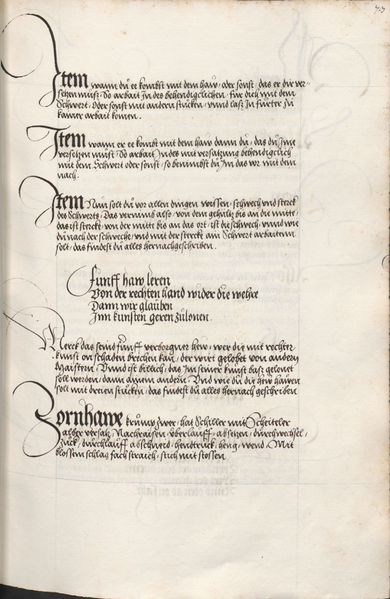 Item wann du er kombst mit dem haw, oder sonst, das er dir ver-
setzen muß, So arbait In des behendigclichen, fur dich mit dem
Schwert, Oder sonst mit andern stucken, vnnd lasß In furter zu
kainer arbait komen.
Item wann er er kombt mit dem haw dann du, das du Ime
versetzen must, So arbait Indes mit versatzung behendigclich
mit dem Schwert oder sonst, so benimbst du Im das vor mit dem
nach.
Item Nun solt du vor allen dingen wissen, schwech vnd sterck
des Schwerts, Das vernim also, von dem gehiltz bis an die mitte,
das ist sterck, von der mitte bis an das ort, ist die schwech, vnnd wie
du nach der schwech, vnd mit der sterck am Schwert arbaiten
solt, das findest du alles hernachgeschriben.
Funff haw leren
Von der rechten hand wider die wehre
Dann wir glauben
Inn kunsten geren zulonen.
Merck das seind funff verborgner hew, wer die mit rechter
kunst on schaden brechen kan, der wirt gelobet von andern
maistern, Vnnd ist billich, das Im seiner kunst baß gelonet
soll werden, dann ainem andern, Vnd wie du die hew hawen
soll mit deren stucken, das findest du alles hernach geschriben
Zornhawe krump, zwer, hat Schiller mit Scheitler
alber versatz, Nachraisen, uberlauff, absetzen, durchwechsel,
zuck, durchlauff, abschneid, hendtruck, heng, wend, Mit
blossen schlag fach straich, stich mit stossen.